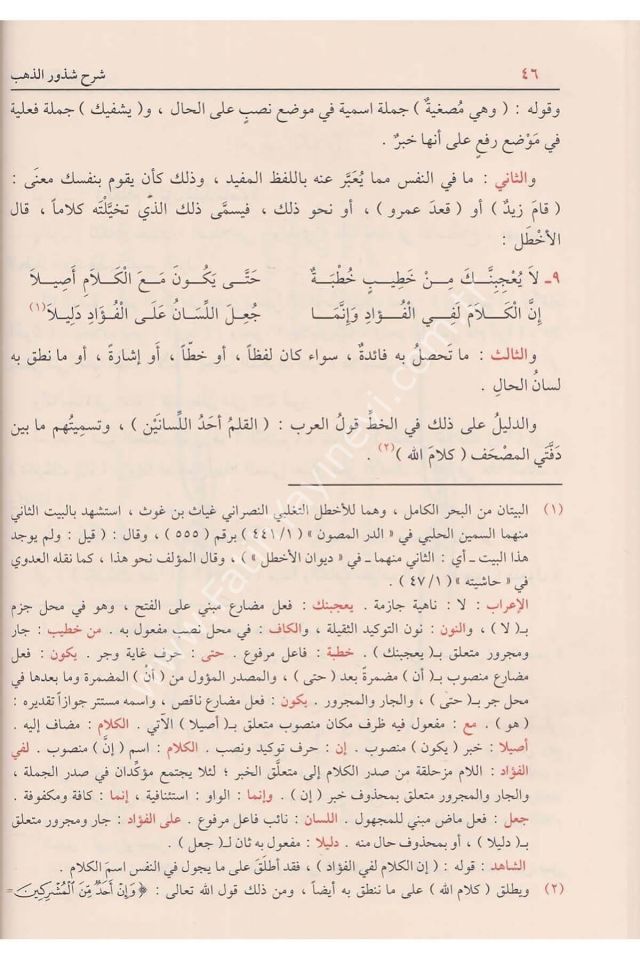 ٤٦ شرح شذور الذهب
وقوله : ( وهي مُصغيةٌ ) جملة اسمية في موضع نصبٍ على الحال ، و( يشفيك ) جملة فعلية
في مَوْضع رفعٍ على أنها خبرٌ .
والثاني : ما في النفس مما يُعَبَّر عنه باللفظ المفيد ، وذلك كأن يقوم بنفسك معنَى :
( قامَ زيدٌ ) أو ( قعدَ عمرو ) ، أو نحو ذلك ، فيسمَّى ذلك الذي تخيَّلْتَه كلاماً ، قال
الأخْطَل :
٩ـ لاَ يُعْجِبَنَّـكَ مِـنْ خَطِيـبٍ خُطْبَـةٌ حَتَّـى يَكُـونَ مَـعَ الْكَـلاَمِ أَصِيـلاَ
إنَّ الْكَـلاَمَ لَفِـي الْفُـؤَادِ وَإِنَّمَـا جُعِلَ اللِّسَانُ عَلَـى الْفُؤَادِ دَلِيلاَ(١)
والثالث : ما تَحصلُ به فائدةٌ ، سواء كان لفظاً ، أو خطّاً ، أو إشارةً ، أو ما نطق به
لسانُ الحالِ .
والدليلُ على ذلك في الخطِّ قولُ العرب : ( القلمُ أحَدُ اللِّسانَيْن ) ، وتسميتُهم ما بين
دَفَّتَيِ المصْحَف ( كلامَ الله )(٢) .
(١) البيتان من البحر الكامل ، وهما للأخطل التغلبي النصراني غياث بن غوث ، استشهد بالبيت الثاني
منهما السمين الحلبي في « الدر المصون » ( ٤٤١/١ ) برقم ( ٥٥٥ ) ، وقال : ( قيل : ولم يوجد
هذا البيت ـ أي : الثاني منهما ـ في « ديوان الأخطل » ) ، وقال المؤلف نحو هذا ، كما نقله العدوي
في « حاشيته » ( ٤٧/١ ) .
الإعراب : لا : ناهية جازمة . يعجبنك : فعل مضارع مبني على الفتح ، وهو في محل جزم
بـ( لا ) ، والنون : نون التوكيد الثقيلة ، والكاف : في محل نصب مفعول به . من خطيب : جار
ومجرور متعلق بـ( يعجبنك ) . خطبة : فاعل مرفوع . حتى : حرف غاية وجر . يكون : فعل
مضارع منصوب بـ( أن ) مضمرةً بعد ( حتى ) ، والمصدر المؤول من ( أن ) المضمرة وما بعدها في
محل جر بـ( حتى ) ، والجار والمجرور . يكون : فعل مضارع ناقص ، واسمه مستتر جوازاً تقديره :
( هو ) . مع : مفعول فيه ظرف مكان منصوب متعلق بـ( أصيلا ) الآتي . الكلام : مضاف إليه .
أصيلا : خبر ( يكون ) منصوب . إن : حرف توكيد ونصب . الكلام : اسم ( إنَّ ) منصوب . لفي
الفؤاد : اللام مزحلقة من صدر الكلام إلى متعلَّق الخبر ؛ لئلا يجتمع مؤكِّدان في صدر الجملة ،
والجار والمجرور متعلق بمحذوف خبر ( إن ) . وإنما : الواو : استئنافية ، إنما : كافة ومكفوفة .
جعل : فعل ماض مبني للمجهول . اللسان : نائب فاعل مرفوع . على الفؤاد : جار ومجرور متعلق
بـ( دليلا ) ، أو بمحذوف حال منه . دليلا : مفعول به ثان لـ( جعل ) .
الشاهد : قوله : ( إن الكلام لفي الفؤاد ) ، فقد أطلق على ما يجول في النفس اسمَ الكلام .
(٢) ويطلق ( كلام الله ) على ما ننطق به أيضاً ، ومن ذلك قول الله تعالى : ﴿ وَإِنْ أَحَدٌ مِّنَ الْمُشْرِكِينَ =